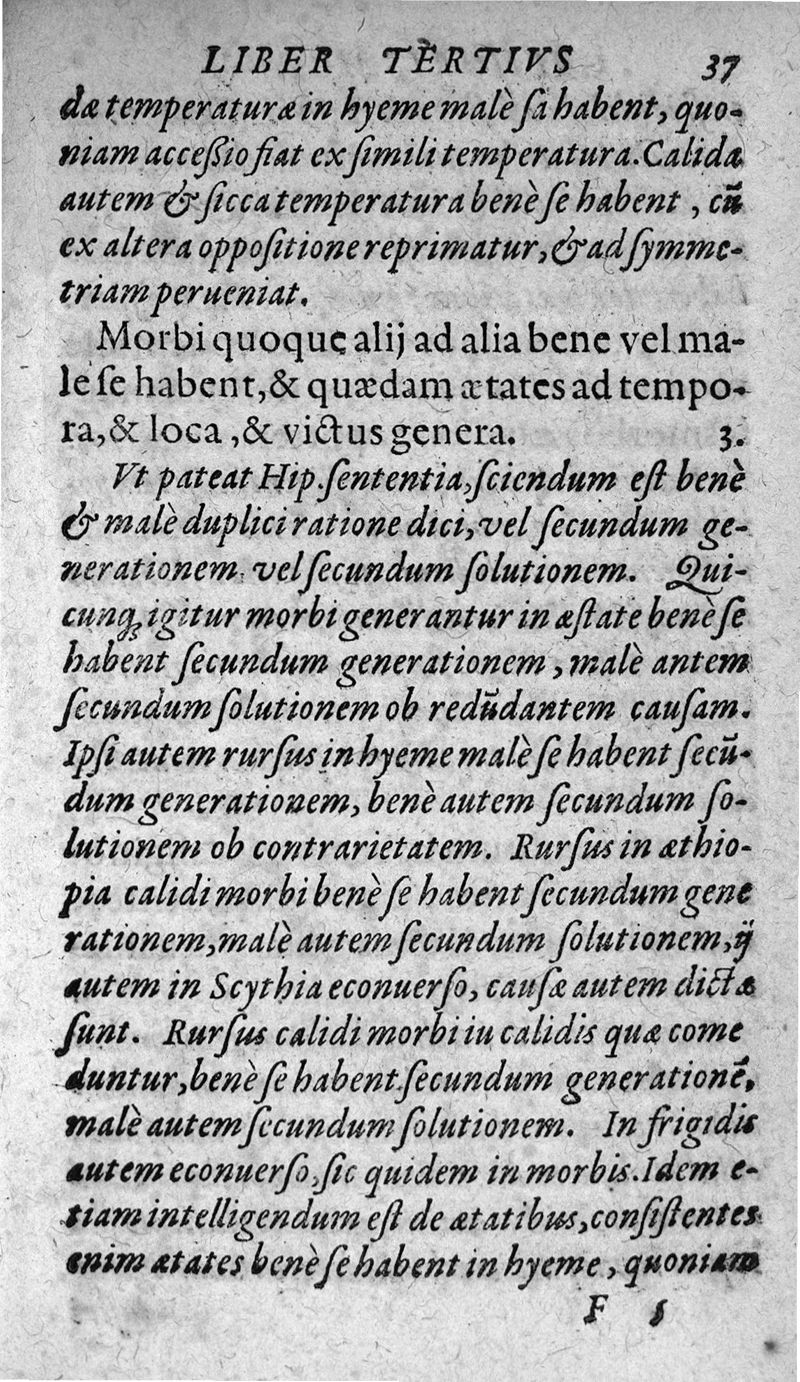 LIBER TERTIVS 37
dæ temperaturæ in hyeme malè ſa habent, quo-
niam acceßio fiat ex ſimili temperatura. Calida
autem & ſicca temperatura benè ſe habent, cū
ex altera oppoſitione reprimatur, & ad ſymme-
triam perueniat.
Morbi quoque alij ad alia bene vel ma-
le ſe habent, & quædam ætates ad tempo-
ra, & loca, & victus genera. 3.
Vt pateat Hip. ſententia, ſciendum eſt benè
& malè duplici ratione dici, vel ſecundum ge-
nerationem vel ſecundum ſolutionem. Qui-
cunq; igitur morbi generantur in æſtate benè ſe
habent ſecundum generationem, malè antem
ſecundum ſolutionem ob redūdantem cauſam.
Ipſi autem rurſus in hyeme malè ſe habent ſecū-
dum generationem, benè autem ſecundum ſo-
lutionem ob contrarietatem. Rurſus in æthio-
pia calidi morbi benè ſe habent ſecundum gene
rationem, malè autem ſecundum ſolutionem, ÿ
autem in Scythia econuerſo, cauſæ autem dictæ
ſunt. Rurſus calidi morbi iu calidis quæ come
duntur, benè ſe habent ſecundum generationē,
malè autem ſecundum ſolutionem. In frigidis
autem econuerſo, ſic quidem in morbis. Idem e-
tiam intelligendum eſt de ætatibus, conſiſtentes
enim ætates benè ſe habent in hyeme, quoniam
F 5